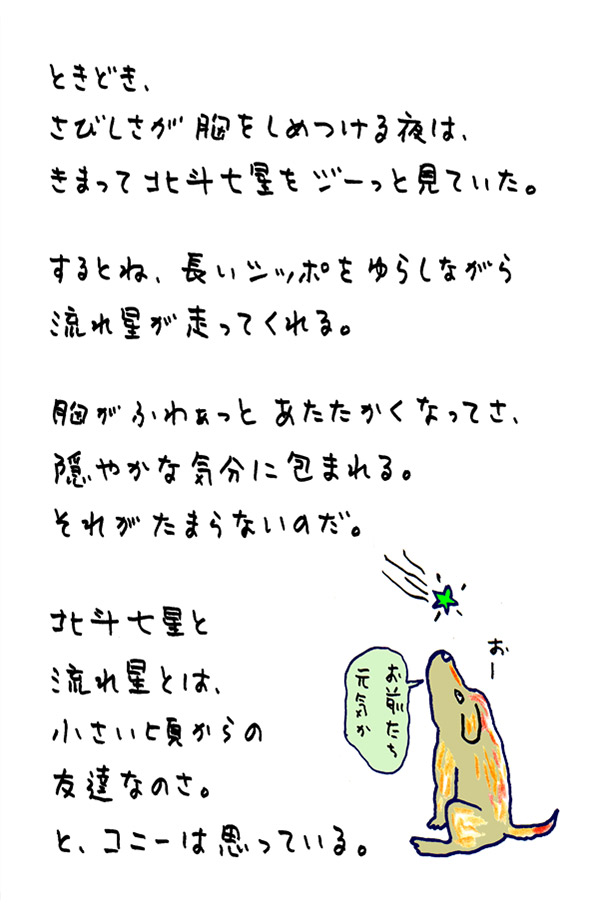 ときどき、
さびしさが 胸をしめつける夜は、
きまって北斗七星を ジーっと見ていた。
するとね、長いシッポを ゆらしながら
流れ星が走ってくれる。
胸が ふわぁっと あたたかくなってさ、
隠やかな気分に包まれる。
それが たまらないのだ。
北斗七星と
流れ星とは、
小さい頃からの
友達なのさ。
と、コニーは思っている。
おー
お前たち
元気か